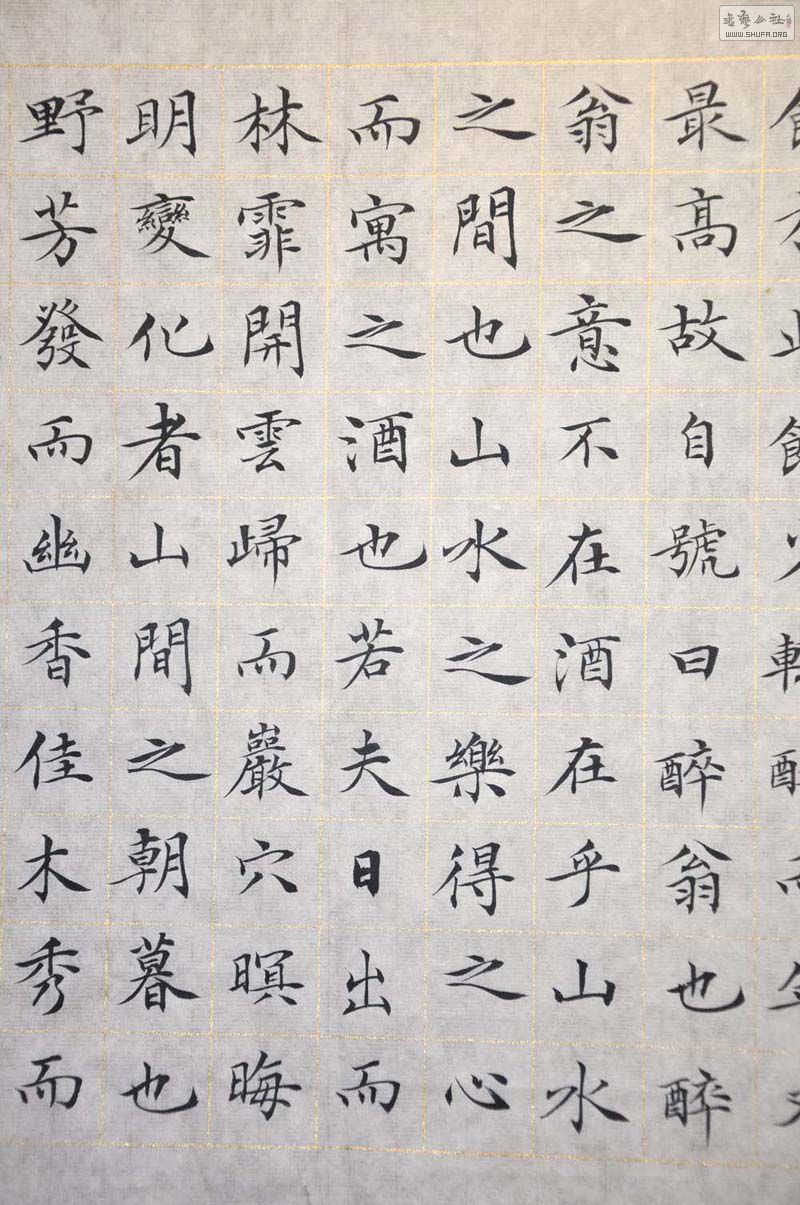 最高故自號曰醉翁也醉
翁之意不在酒在乎山水
之間也山水之樂得之心
而寓之酒也若夫日出而
林霏開雲歸而巖穴暝晦
明變化者山間之朝暮也
野芳發而幽香佳木秀而
WWW.SHUFA.ORG